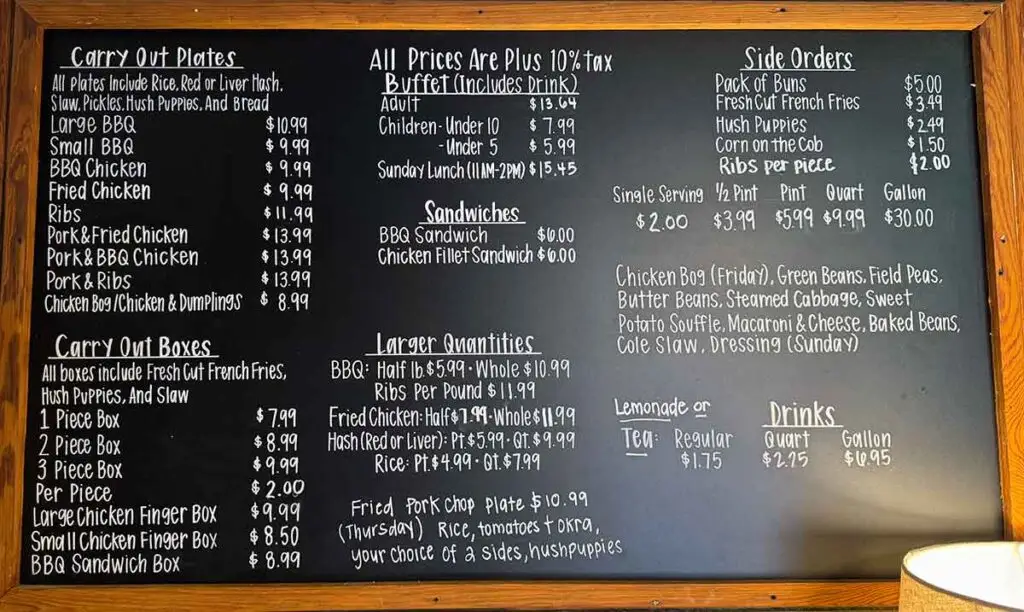 Carry Out Plates
All Plates Include Rice, Red or Liver Hash,
Slaw, Pickles, Hush Puppies, And Bread
Large BBQ $10.99
Small BBQ $9.99
BBQ Chicken $9.99
Fried Chicken $9.99
Ribs $11.99
Pork & Fried Chicken $13.99
Pork & BBQ Chicken $13.99
Pork & Ribs $13.99
Chicken Bog/Chicken & Dumplings $8.99
Carry Out Boxes
All boxes include Fresh Cut French Fries,
Hush Puppies, And Slaw
1 Piece Box $7.99
2 Piece Box $8.99
3 Piece Box $9.99
Per Piece $2.00
Large Chicken Finger Box $9.99
Small Chicken Finger Box $8.50
BBQ Sandwich Box $8.99
All Prices Are Plus 10% tax
Buffet (Includes Drink)
Adult $13.64
Children - Under 10 $7.99
- Under 5 $5.99
Sunday Lunch (11AM-2PM) $15.45
Sandwiches
BBQ Sandwich $6.00
Chicken Fillet Sandwich $6.00
Larger Quantities
BBQ: Half lb. $5.99 - Whole $10.99
Ribs Per Pound $11.99
Fried Chicken: Half $7.99 - Whole $11.99
Hash (Red or Liver): Pt. $5.99 - Qt. $9.99
Rice: Pt. $4.99 - Qt. $7.99
Fried Pork Chop Plate $10.99
(Thursday) Rice, tomatoes + okra,
your choice of 2 sides, hushpuppies
Side Orders
Pack of Buns $5.00
Fresh Cut French Fries $3.49
Hush Puppies $2.49
Corn on the Cob $1.50
Ribs per piece $2.00
Single Serving 1/2 Pint Pint Quart Gallon
$2.00 $3.99 $5.99 $9.99 $30.00
Chicken Bog (Friday), Green Beans, Field Peas,
Butter Beans, Steamed Cabbage, Sweet
Potato Souffle, Macaroni & Cheese, Baked Beans,
Cole Slaw, Dressing (Sunday)
Lemonade or Drinks
Tea: Regular Quart Gallon
$1.75 $2.25 $6.95